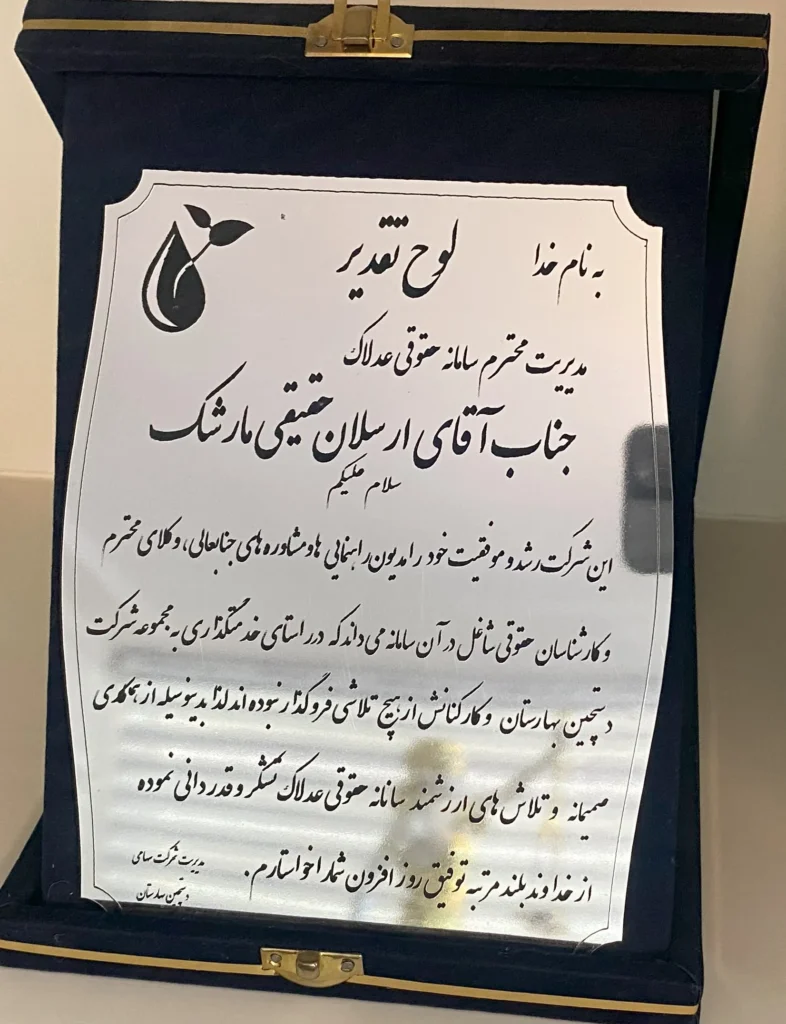 به نام خدا
لوح تقدیر
مدیریت محترم سامانه حقوقی عدلاک
جناب آقای ارسلان حقیقی مارشک
سلام علیکم
این شرکت رشد و موفقیت خود را مدیون راهنمایی ها و مشاوره های جنابعالی، وکلای محترم
و کارشناسان حقوقی شاغل در آن سامانه می داند که در راستای خدمتگذاری به مجموعه شرکت
دستچین بهارستان و کارکنانش از هیچ تلاشی فروگذار نبوده اند لذا بدینوسیله از همکاری
صمیمانه و تلاش های ارزشمند سانانه حقوقی عدلاک تشکر و قدردانی نموده
از خداوند بلند مرتبه توفیق روز افزون شما را خواستارم.
مدیریت شرکت سهامی
دستچین بهارستان